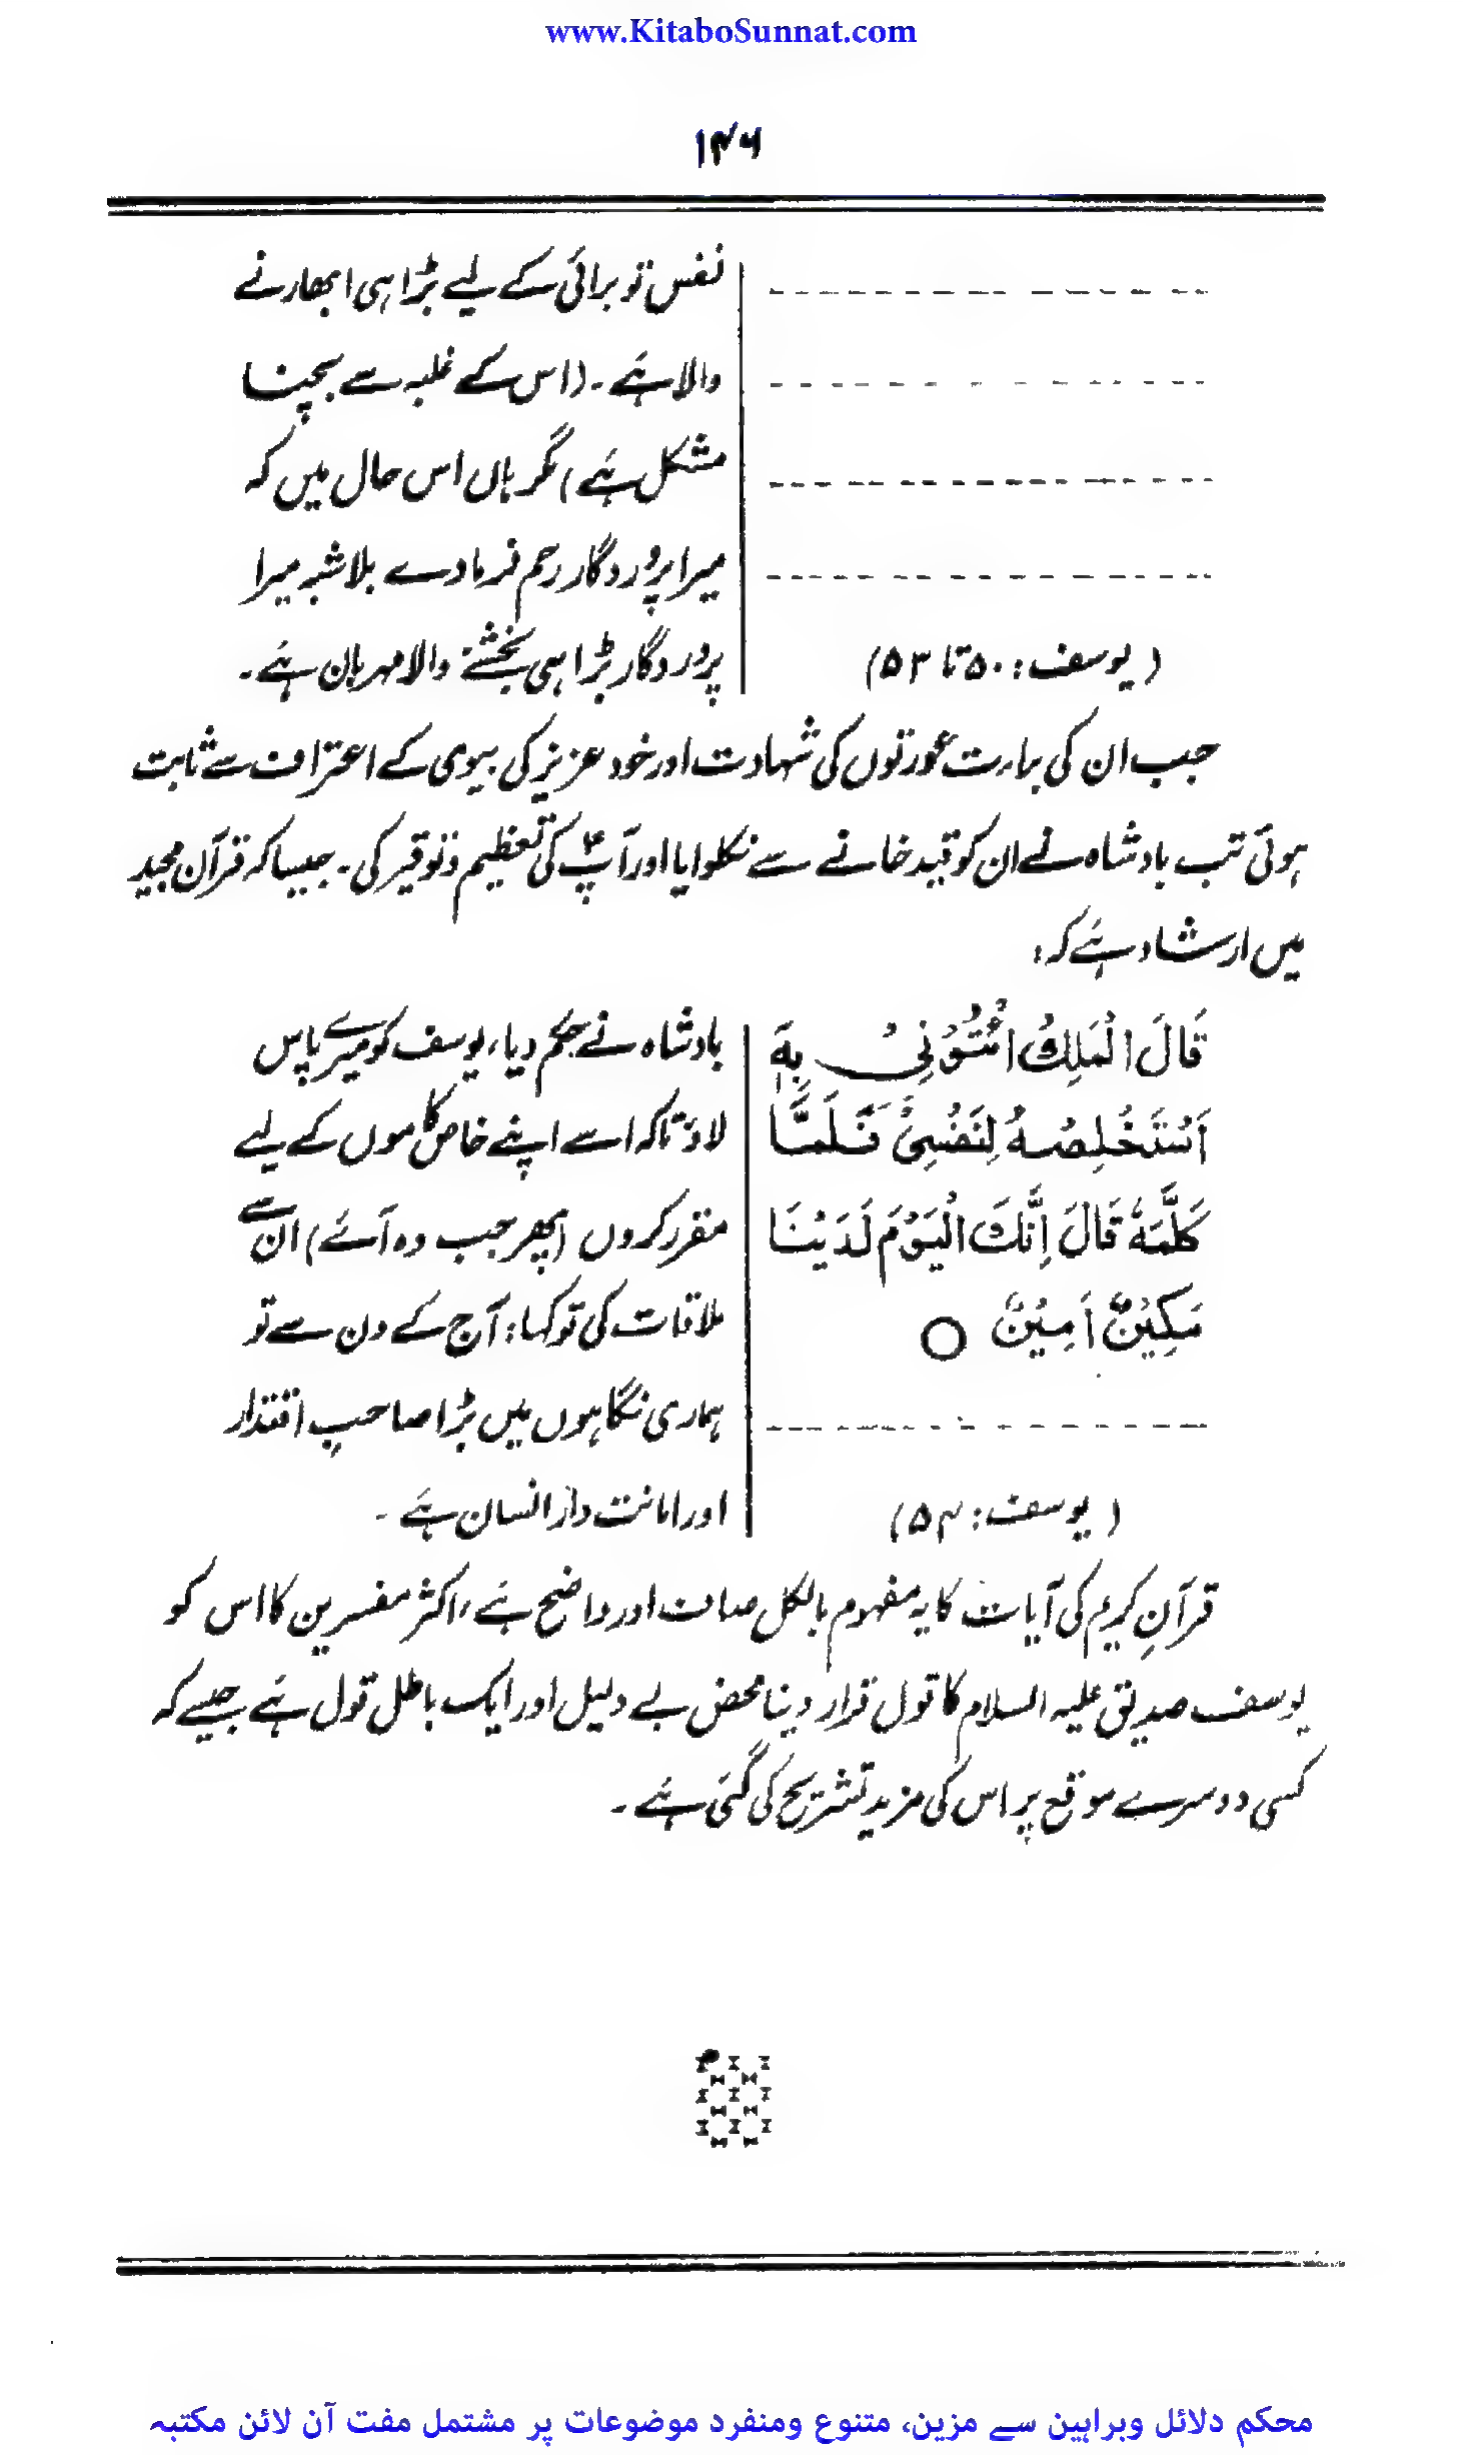 www.KitaboSunnat.com
۱۴۶
نفس تو برائی کے لیے بڑا ہی ابھارنے
والا ہے۔ (اس کے غلبہ سے بچنا
مشکل ہے) مگر ہاں اس حال میں کہ
میرا پروردگار رحم فرمادے بلاشبہ میرا
پروردگار بڑا ہی بخشنے والا مہربان ہے۔
(یوسف: ۵۰ تا ۵۳)
جب ان کی براءت عورتوں کی شہادت اور خود عزیز کی بیوی کے اعتراف سے ثابت
ہوئی تب بادشاہ نے ان کو قید خانے سے نکلوایا اور آپؑ کی تعظیم و توقیر کی۔ جیسا کہ قرآن مجید
میں ارشاد ہے کہ:
قَالَ الْمَلِكُ ائْتُوْنِیْ بِهٖ
اَسْتَخْلِصْهُ لِنَفْسِیْ فَلَمَّا
كَلَّمَهٗ قَالَ اِنَّكَ الْیَوْمَ لَدَیْنَا
مَكِیْنٌ اَمِیْنٌ ○
(یوسف: ۵۴)
بادشاہ نے حکم دیا، یوسف کو میرے پاس
لاؤ تاکہ اسے اپنے خاص کاموں کے لیے
مقرر کروں (پھر جب وہ آئے) ان سے
ملاقات کی تو کہا: آج کے دن سے تو
ہماری نگاہوں میں بڑا صاحبِ اقتدار
اور امانت دار انسان ہے۔
قرآنِ کریم کی آیات کا یہ مفہوم بالکل صاف اور واضح ہے، اکثر مفسرین کا اس کو
یوسف صدیق علیہ السلام کا قول قرار دینا محض بے دلیل اور ایک باطل قول ہے جیسے کہ
کسی دوسرے موقع پر اس کی مزید تشریح کی گئی ہے۔
محکم دلائل وبراہین سے مزین، متنوع ومنفرد موضوعات پر مشتمل مفت آن لائن مکتبہ